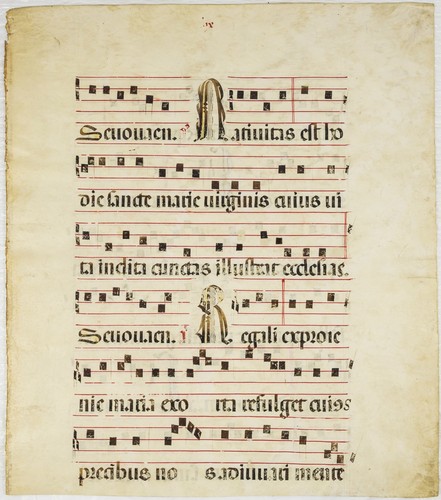 Seuouaen. Natiuitas est ho
die sancte marie uirginis cuius ui
ta inclita cunctas illustrat ecclesias.
Seuouaen. Regali exproie
nie maria exo rta refulget cuius
precibus no s adiuuari mente